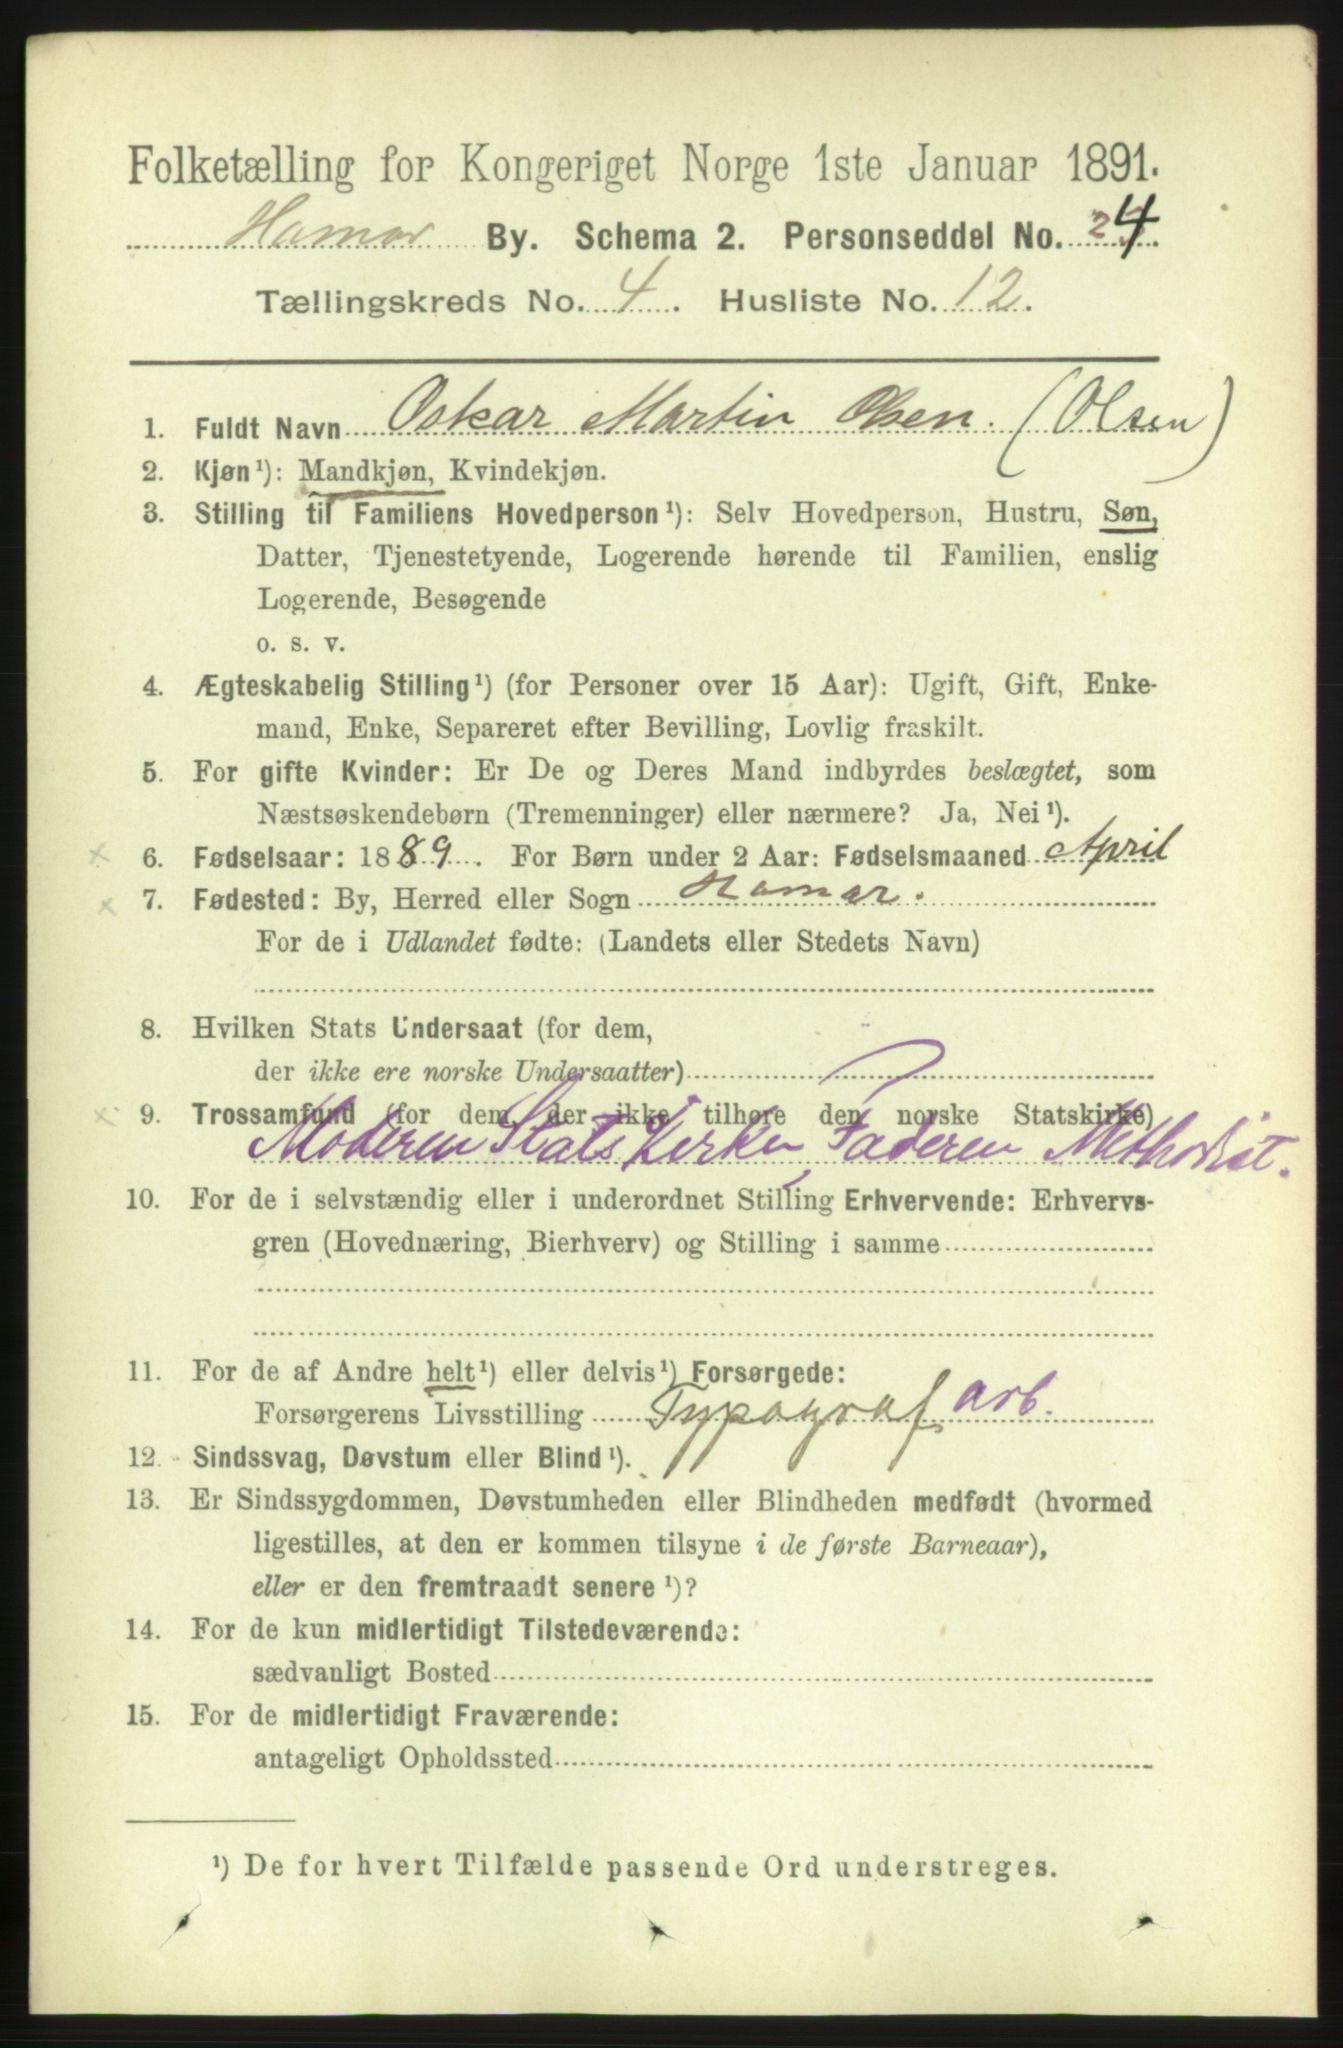 Folketælling for Kongeriget Norge 1ste Januar 1891.
Hamar By. Schema 2. Personseddel No. 24.
Tællingskreds No. 4. Husliste No. 12.
1. Fuldt Navn Oskar Martin Olsen. (Olsen)
2. Kjøn¹): Mandkjøn, Kvindekjøn.
3. Stilling til Familiens Hovedperson¹): Selv Hovedperson, Hustru, Søn,
Datter, Tjenestetyende, Logerende hørende til Familien, enslig
Logerende, Besøgende
o. s. v.
4. Ægteskabelig Stilling¹) (for Personer over 15 Aar): Ugift, Gift, Enke-
mand, Enke, Separeret efter Bevilling, Lovlig fraskilt.
5. For gifte Kvinder: Er De og Deres Mand indbyrdes beslægtet, som
Næstsøskendebørn (Tremenninger) eller nærmere? Ja, Nei¹).
6. Fødselsaar: 1889. For Børn under 2 Aar: Fødselsmaaned April
7. Fødested: By, Herred eller Sogn Hamar.
For de i Udlandet fødte: (Landets eller Stedets Navn)
8. Hvilken Stats Undersaat (for dem,
der ikke ere norske Undersaatter)
9. Trossamfund (for dem, der ikke tilhøre den norske Statskirke)
Moderen Stats Kirken, Faderen Methodist.
10. For de i selvstændig eller i underordnet Stilling Erhvervende: Erhvervs-
gren (Hovednæring, Bierhverv) og Stilling i samme
11. For de af Andre helt¹) eller delvis¹) Forsørgede:
Forsørgerens Livsstilling Typograf arb.
12. Sindssvag, Døvstum eller Blind¹).
13. Er Sindssygdommen, Døvstumheden eller Blindheden medfødt (hvormed
ligestilles, at den er kommen tilsyne i de første Barneaar),
eller er den fremtraadt senere¹)?
14. For de kun midlertidigt Tilstedeværende:
sædvanligt Bosted
15. For de midlertidigt Fraværende:
antageligt Opholdssted
¹) De for hvert Tilfælde passende Ord understreges.